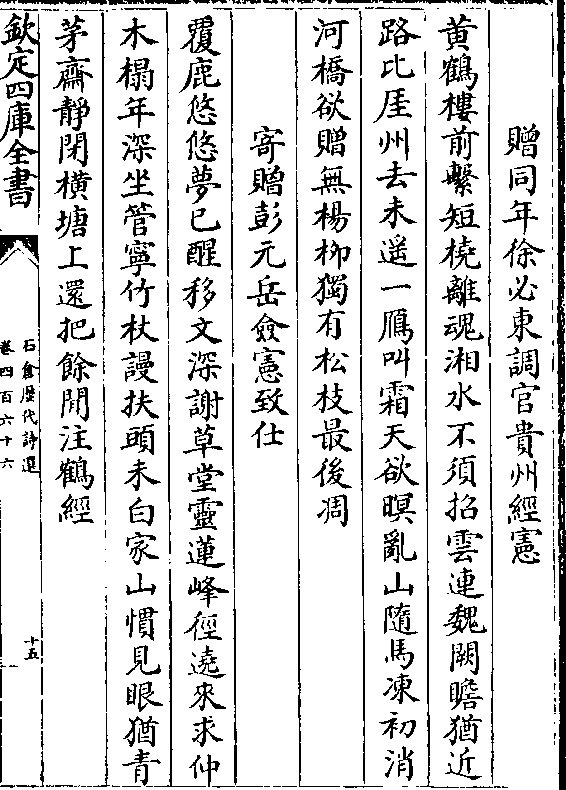 贈同年徐必東調官貴州經憲
黄鶴樓前繫短橈離魂湘水不須招雲連魏闕瞻猶近
路比厓州去未遥一鴈叫霜天欲暝亂山隨馬凍初消
河橋欲贈無楊柳獨有松枝最後凋
寄贈彭元岳僉憲致仕
覆鹿悠悠夢已醒移文深謝草堂靈蓮峰徑遶來求仲
木榻年深坐管寧竹杖謾扶頭未白家山慣見眼猶青
茅齋静閉横塘上還把餘閒注鶴經
欽定四庫全書
石倉歷代詩選
卷四百六十六
十五